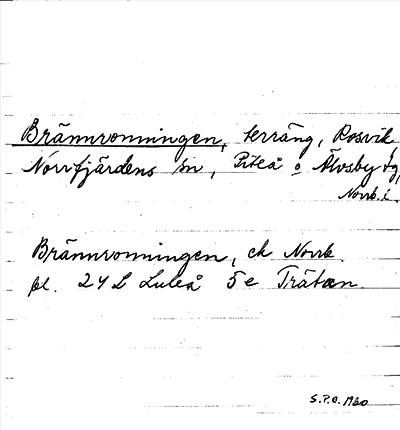 Brännvonningen, terräng, Rosvik
Norrfjärdens sn, Piteå o Älvsby tg,
Norrb. l.
Brännvonningen, ek Norrb.
bl. 24 L Luleå 5e Trätan
S.P.O. 1960